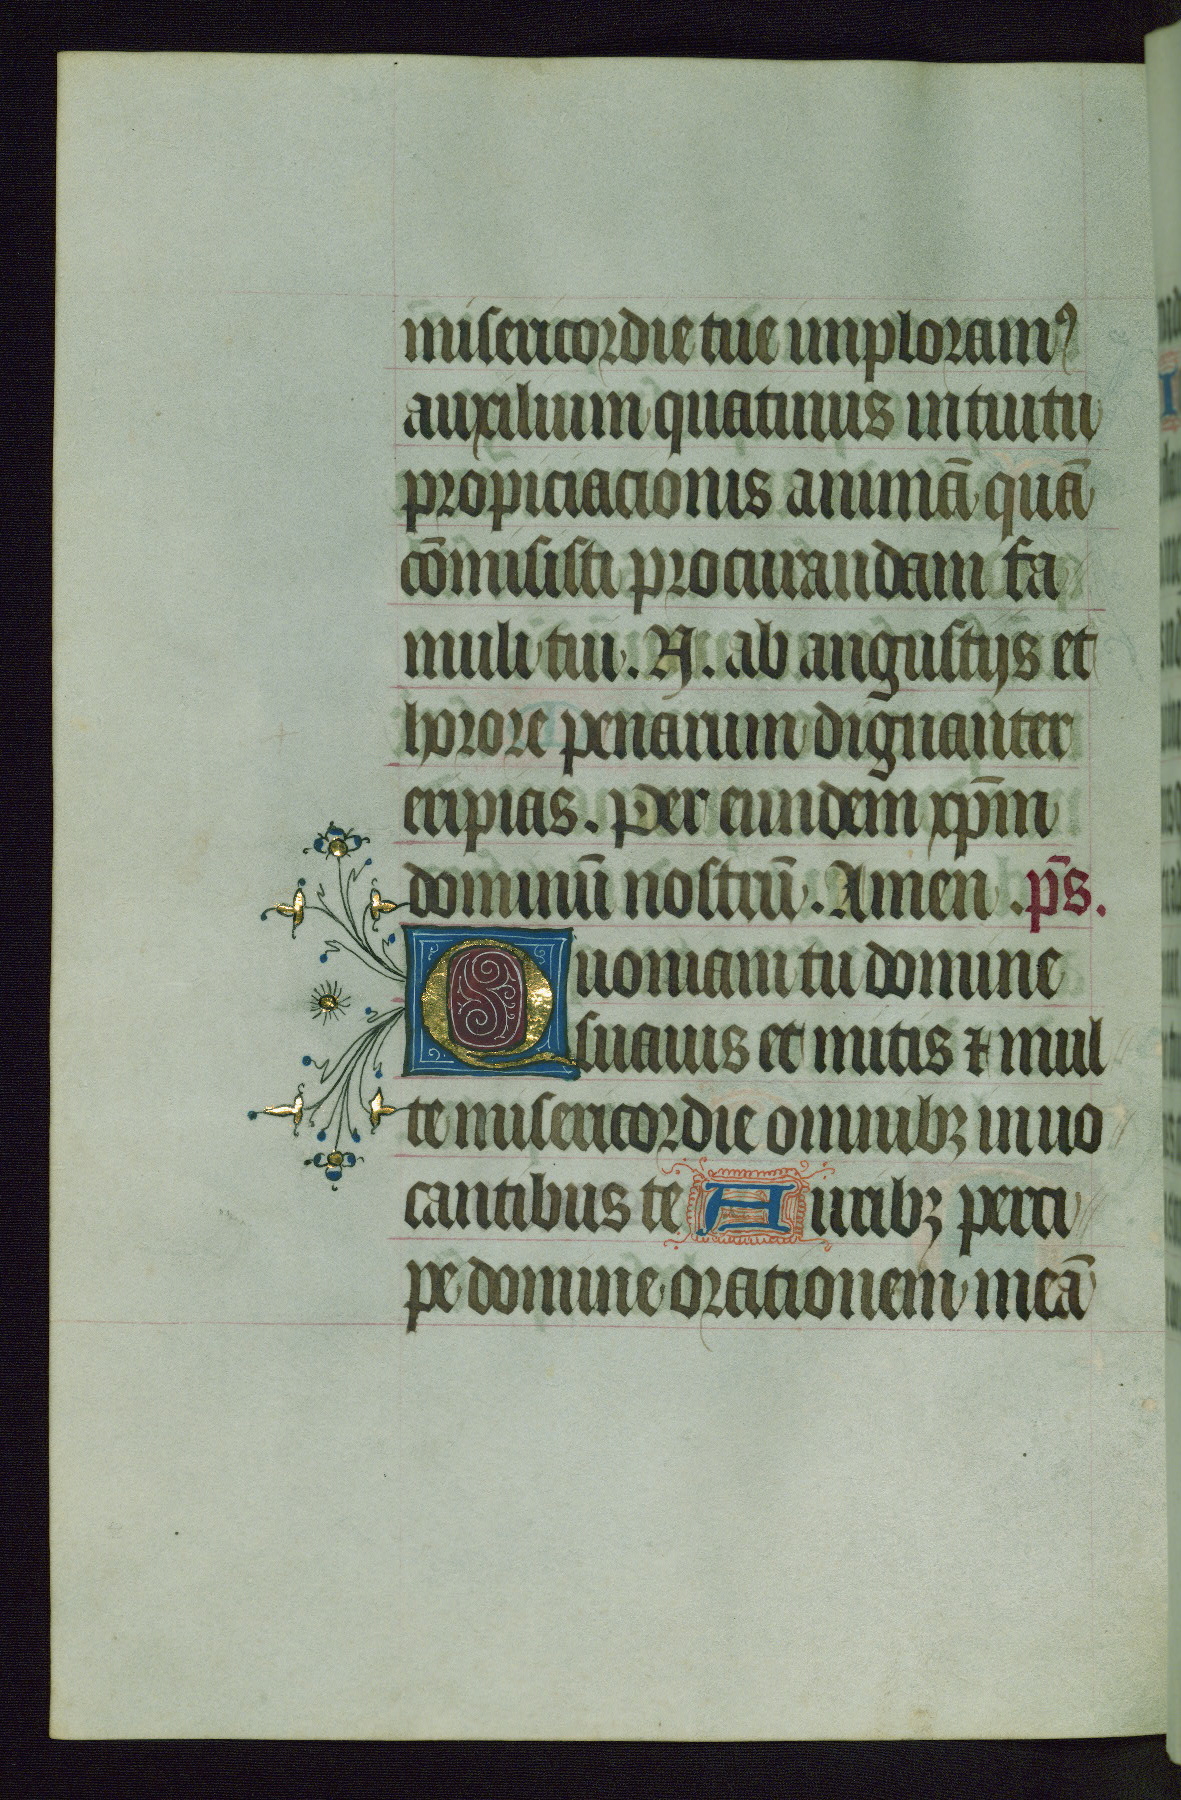 misericordie tue imploramꝰ
auxilium quatinus intuitu
propiciacionis animā quā
cōmisisti procurandam fa
muli tui. N. ab angustijs et
horore penarum dignanter
eripias. Per eundem xp̄m
dominū nostrū. Amen. p̄s.
Quoniam tu domine
suauis et mitis ⁊ mul
te misericordie omnibꝫ inuo
cantibus te Auribꝫ perci
pe domine orationem meā